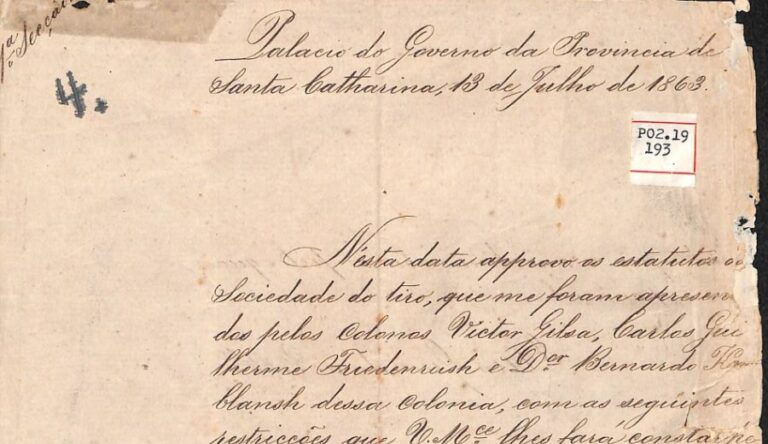 1ª Secção
4.
Palacio do Governo da Provincia de
Santa Catharina, 13 de Julho de 1863.
P02.19
193
Nésta data approvo os estatutos
Sociedade do tiro, que me foram apresen
dos pelos colonos Victor Gilsa, Carlos Gui
lherme Friedenreish e Dor Bernardo
blansh dessa colonia, com as seguintes
restricções que V. Mce lhes fará constar